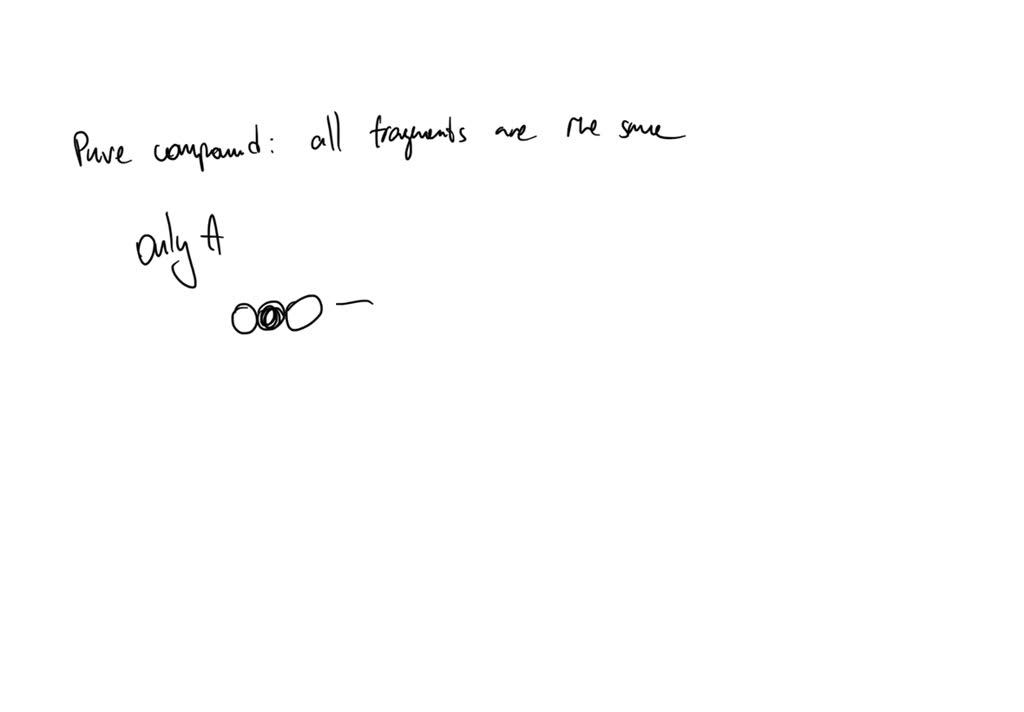 Pure compound: all fragments are the same
only A